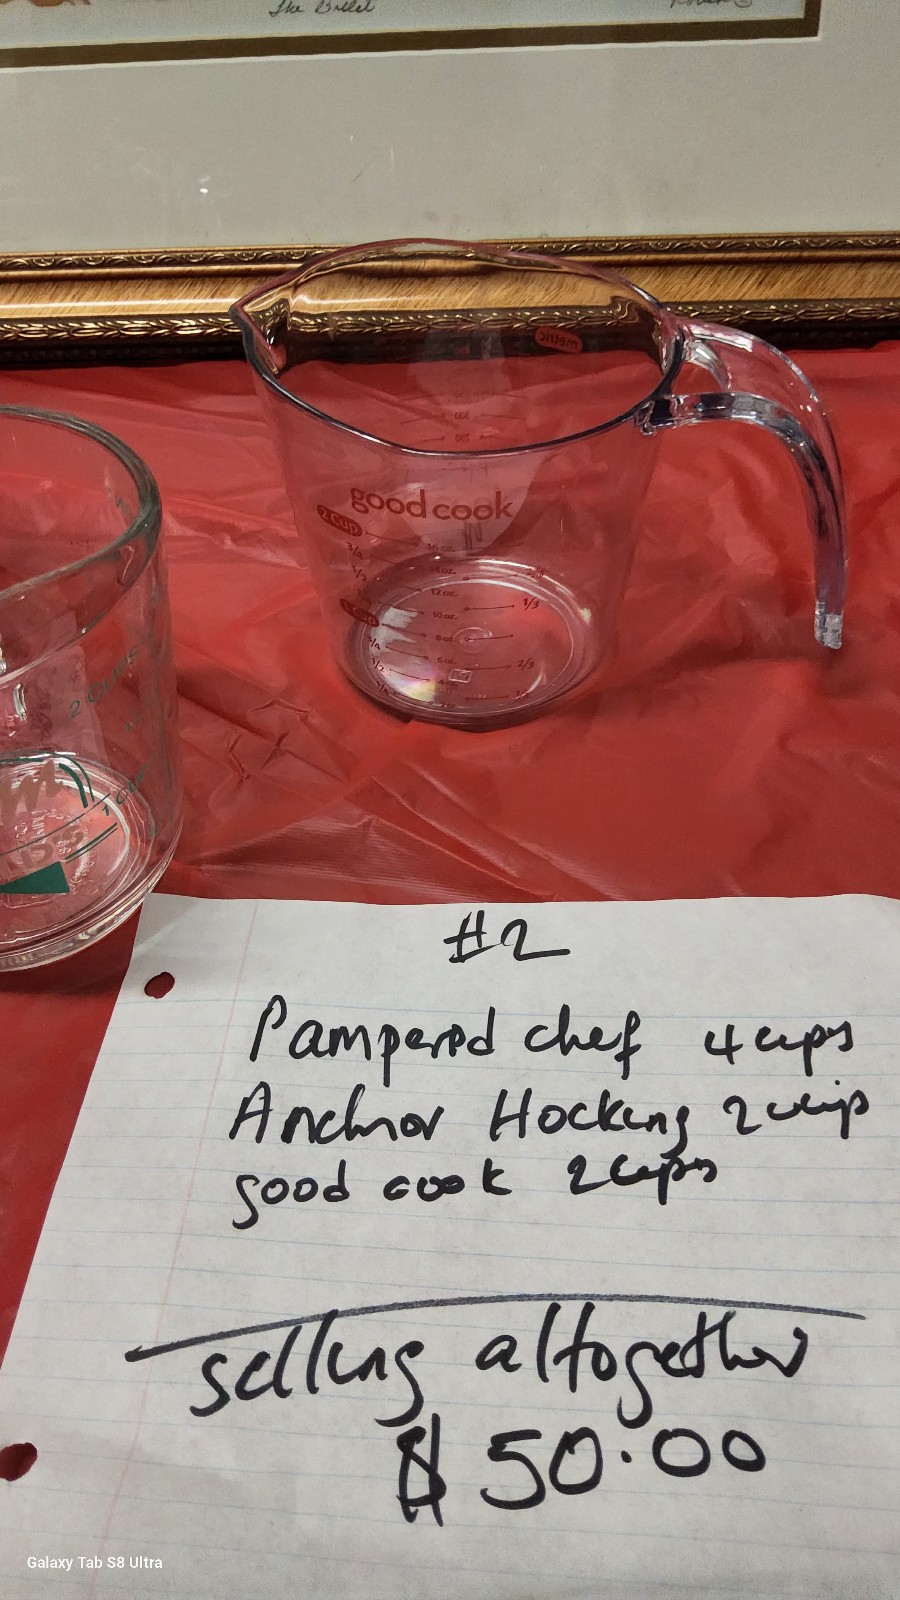 The Ballet
metric
good cook
2 Cup
3/4
16 oz.
1/2
12 oz.
1/3
10 oz.
1 Cup
8 oz.
3/4
6 oz.
2/3
1/2
4 oz.
2 CUPS
1 CUP
#2
Pampered chef 4 cups
Anchor Hocking 2 cup
good cook 2 cups
selling altogether
$ 50.00
Galaxy Tab S8 Ultra